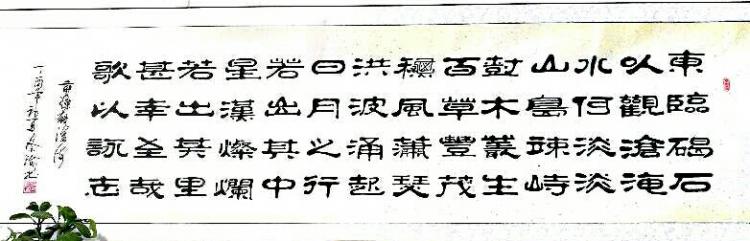 東臨碣石
以觀滄海
水何淡淡
山島竦峙
樹木叢生
百草豐茂
穐風蕭瑟
洪波涌起
日月之行
若出其中
星漢燦爛
若出其里
甚幸至哉
歌以詠志
曹操觀滄海
丁酉年